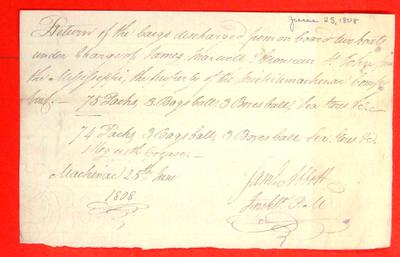 June 23, 1808
Return of the cargo discharged from on board two boats
under charge of James Maxwell & Francois St.
the Mississippi, the property of the Michilimackinac Company
75 Packs, 3 Bags ball, 3 Boxes ball, Sea &c
74 Packs, 3 Bags ball, 3 Boxes ball &c
1 Keg with Grease.—
Mackinac 25th June
1808
Saml Abbott